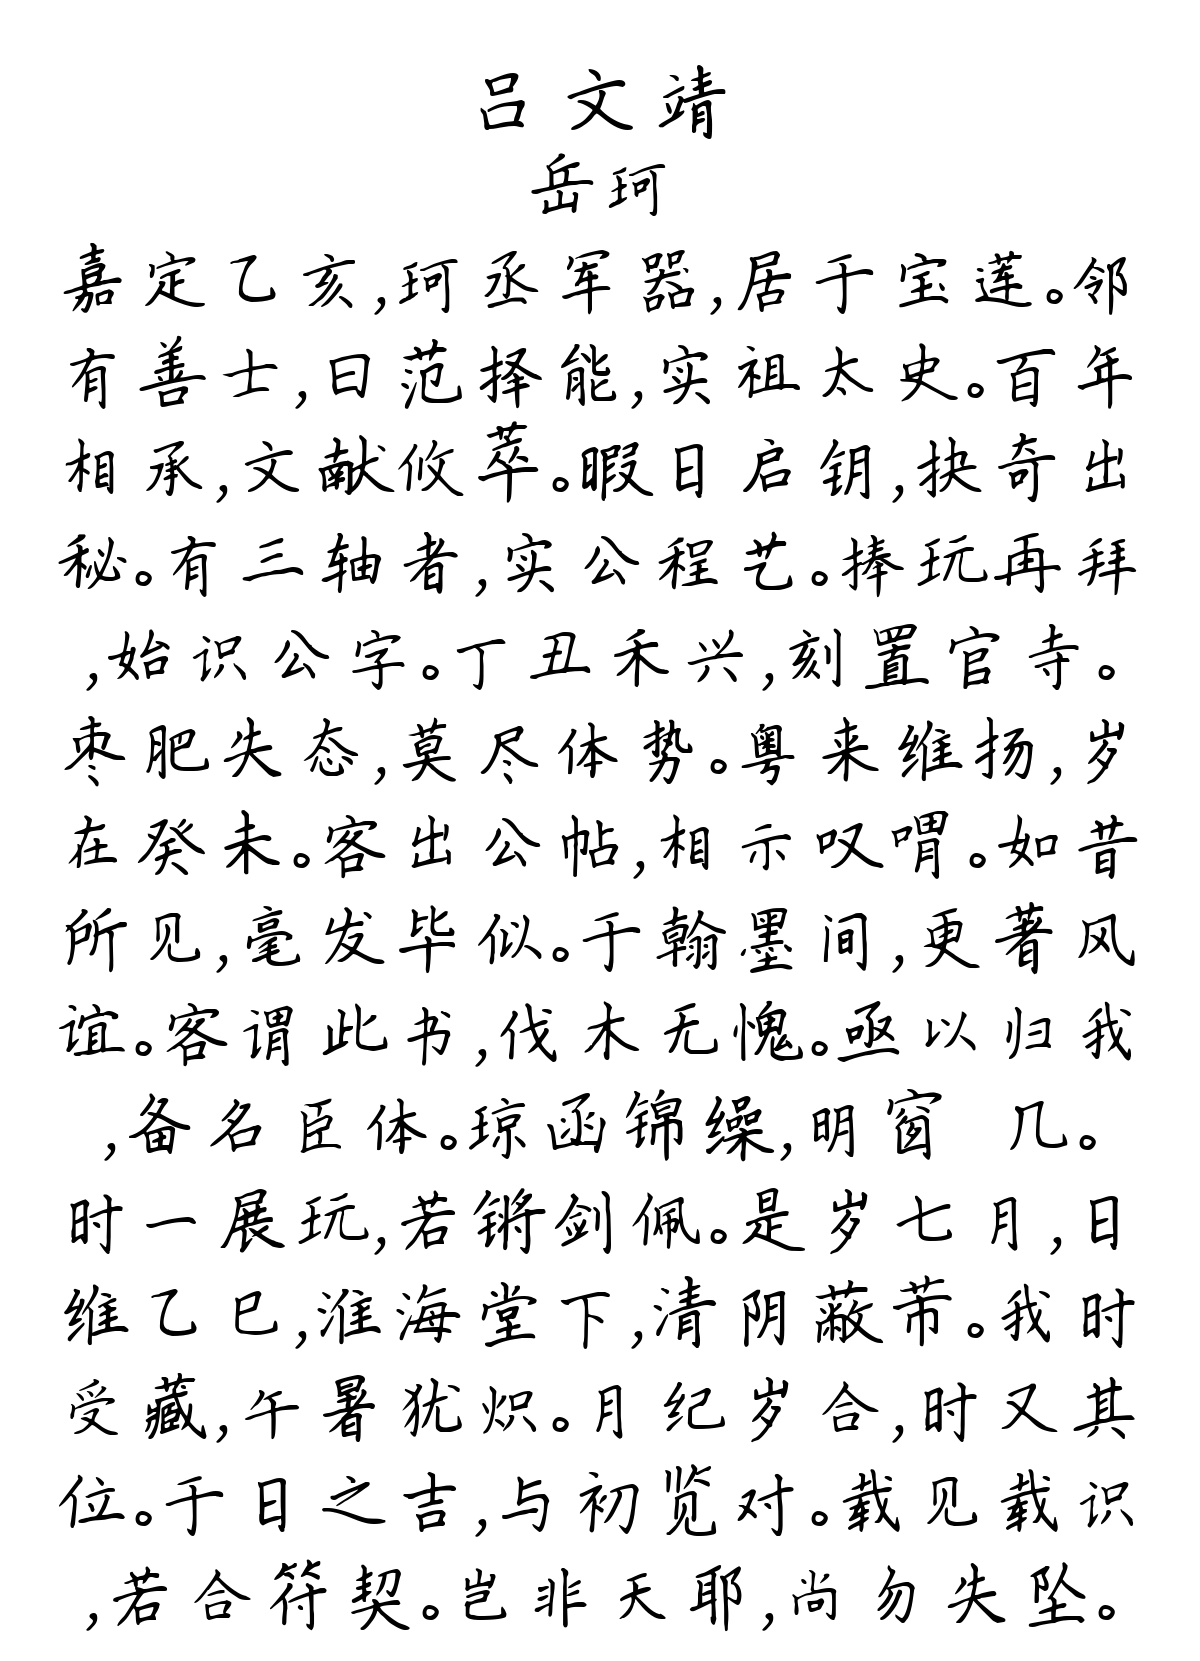 吕文靖
岳珂
嘉定乙亥,珂丞军器,居于宝莲。邻
有善士,曰范择能,实祖太史。百年
相承,文献攸萃。暇日启钥,抉奇出
秘。有三轴者,实公程艺。捧玩再拜
,始识公字。丁丑禾兴,刻置官寺。
枣肥失态,莫尽体势。粤来维扬,岁
在癸未。客出公帖,相示叹喟。如昔
所见,毫发毕似。于翰墨间,更著风
谊。客谓此书,伐木无愧。亟以归我
,备名臣体。琼函锦缲,明窗 几。
时一展玩,若锵剑佩。是岁七月,日
维乙巳,淮海堂下,清阴蔽芾。我时
受藏,午暑犹炽。月纪岁合,时又其
位。于日之吉,与初览对。载见载识
,若合符契。岂非天耶,尚勿失坠。